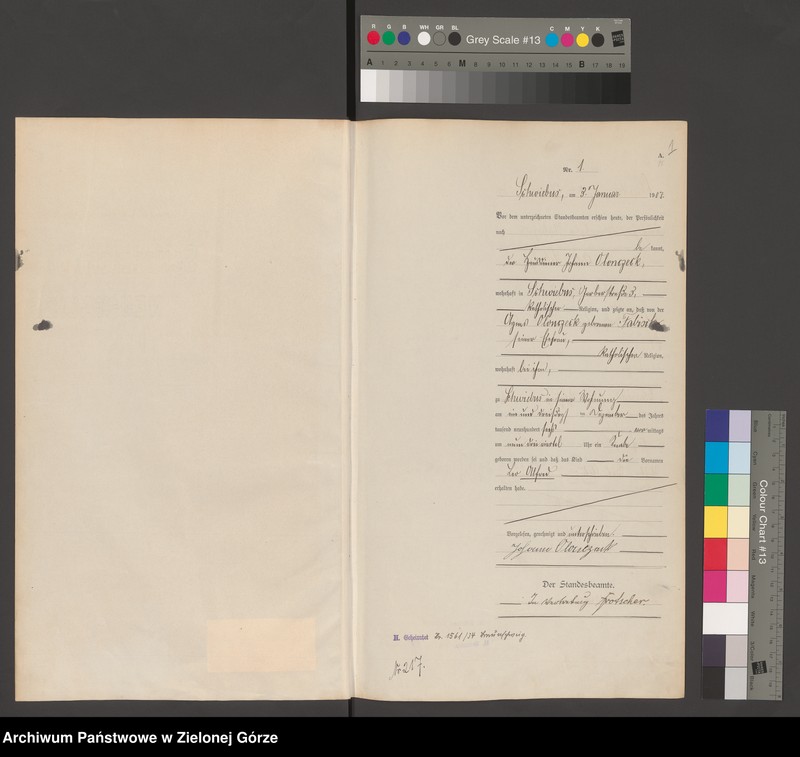 R G B WH GR BL
Grey Scale #13
C M Y K
A 1 2 3 4 5 6 M 8 9 10 11 12 13 14 15 B 17 18 19
A. 1
Nr. 1
Schwiebus, am 3. Januar 1907.
Vor dem unterzeichneten Standesbeamten erschien heute, der Persönlichkeit
nach
be kannt,
der Johann Olonczeck,
wohnhaft in Schwiebus, Gerberstraße 3,
katholischer Religion, und zeigte an, daß von der
Agnes Olonczeck geborenen
seiner Ehefrau,
katholischer Religion,
wohnhaft bei ihm,
zu Schwiebus in seiner Wohnung
am ein und dreißigsten Dezember des Jahres
tausend neunhundert sechs mittags
um neun drei viertel Uhr ein Knabe
geboren worden sei und daß das Kind die Vornamen
Leo Alfred
erhalten habe.
Vorgelesen, genehmigt und unterschrieben
Johann Olonczeck
Der Standesbeamte.
In Vertretung
H. Geheiratet Nr. 1561/34 Braunschweig
Nr. 217.
Colour Chart #13
Archiwum Państwowe w Zielonej Górze